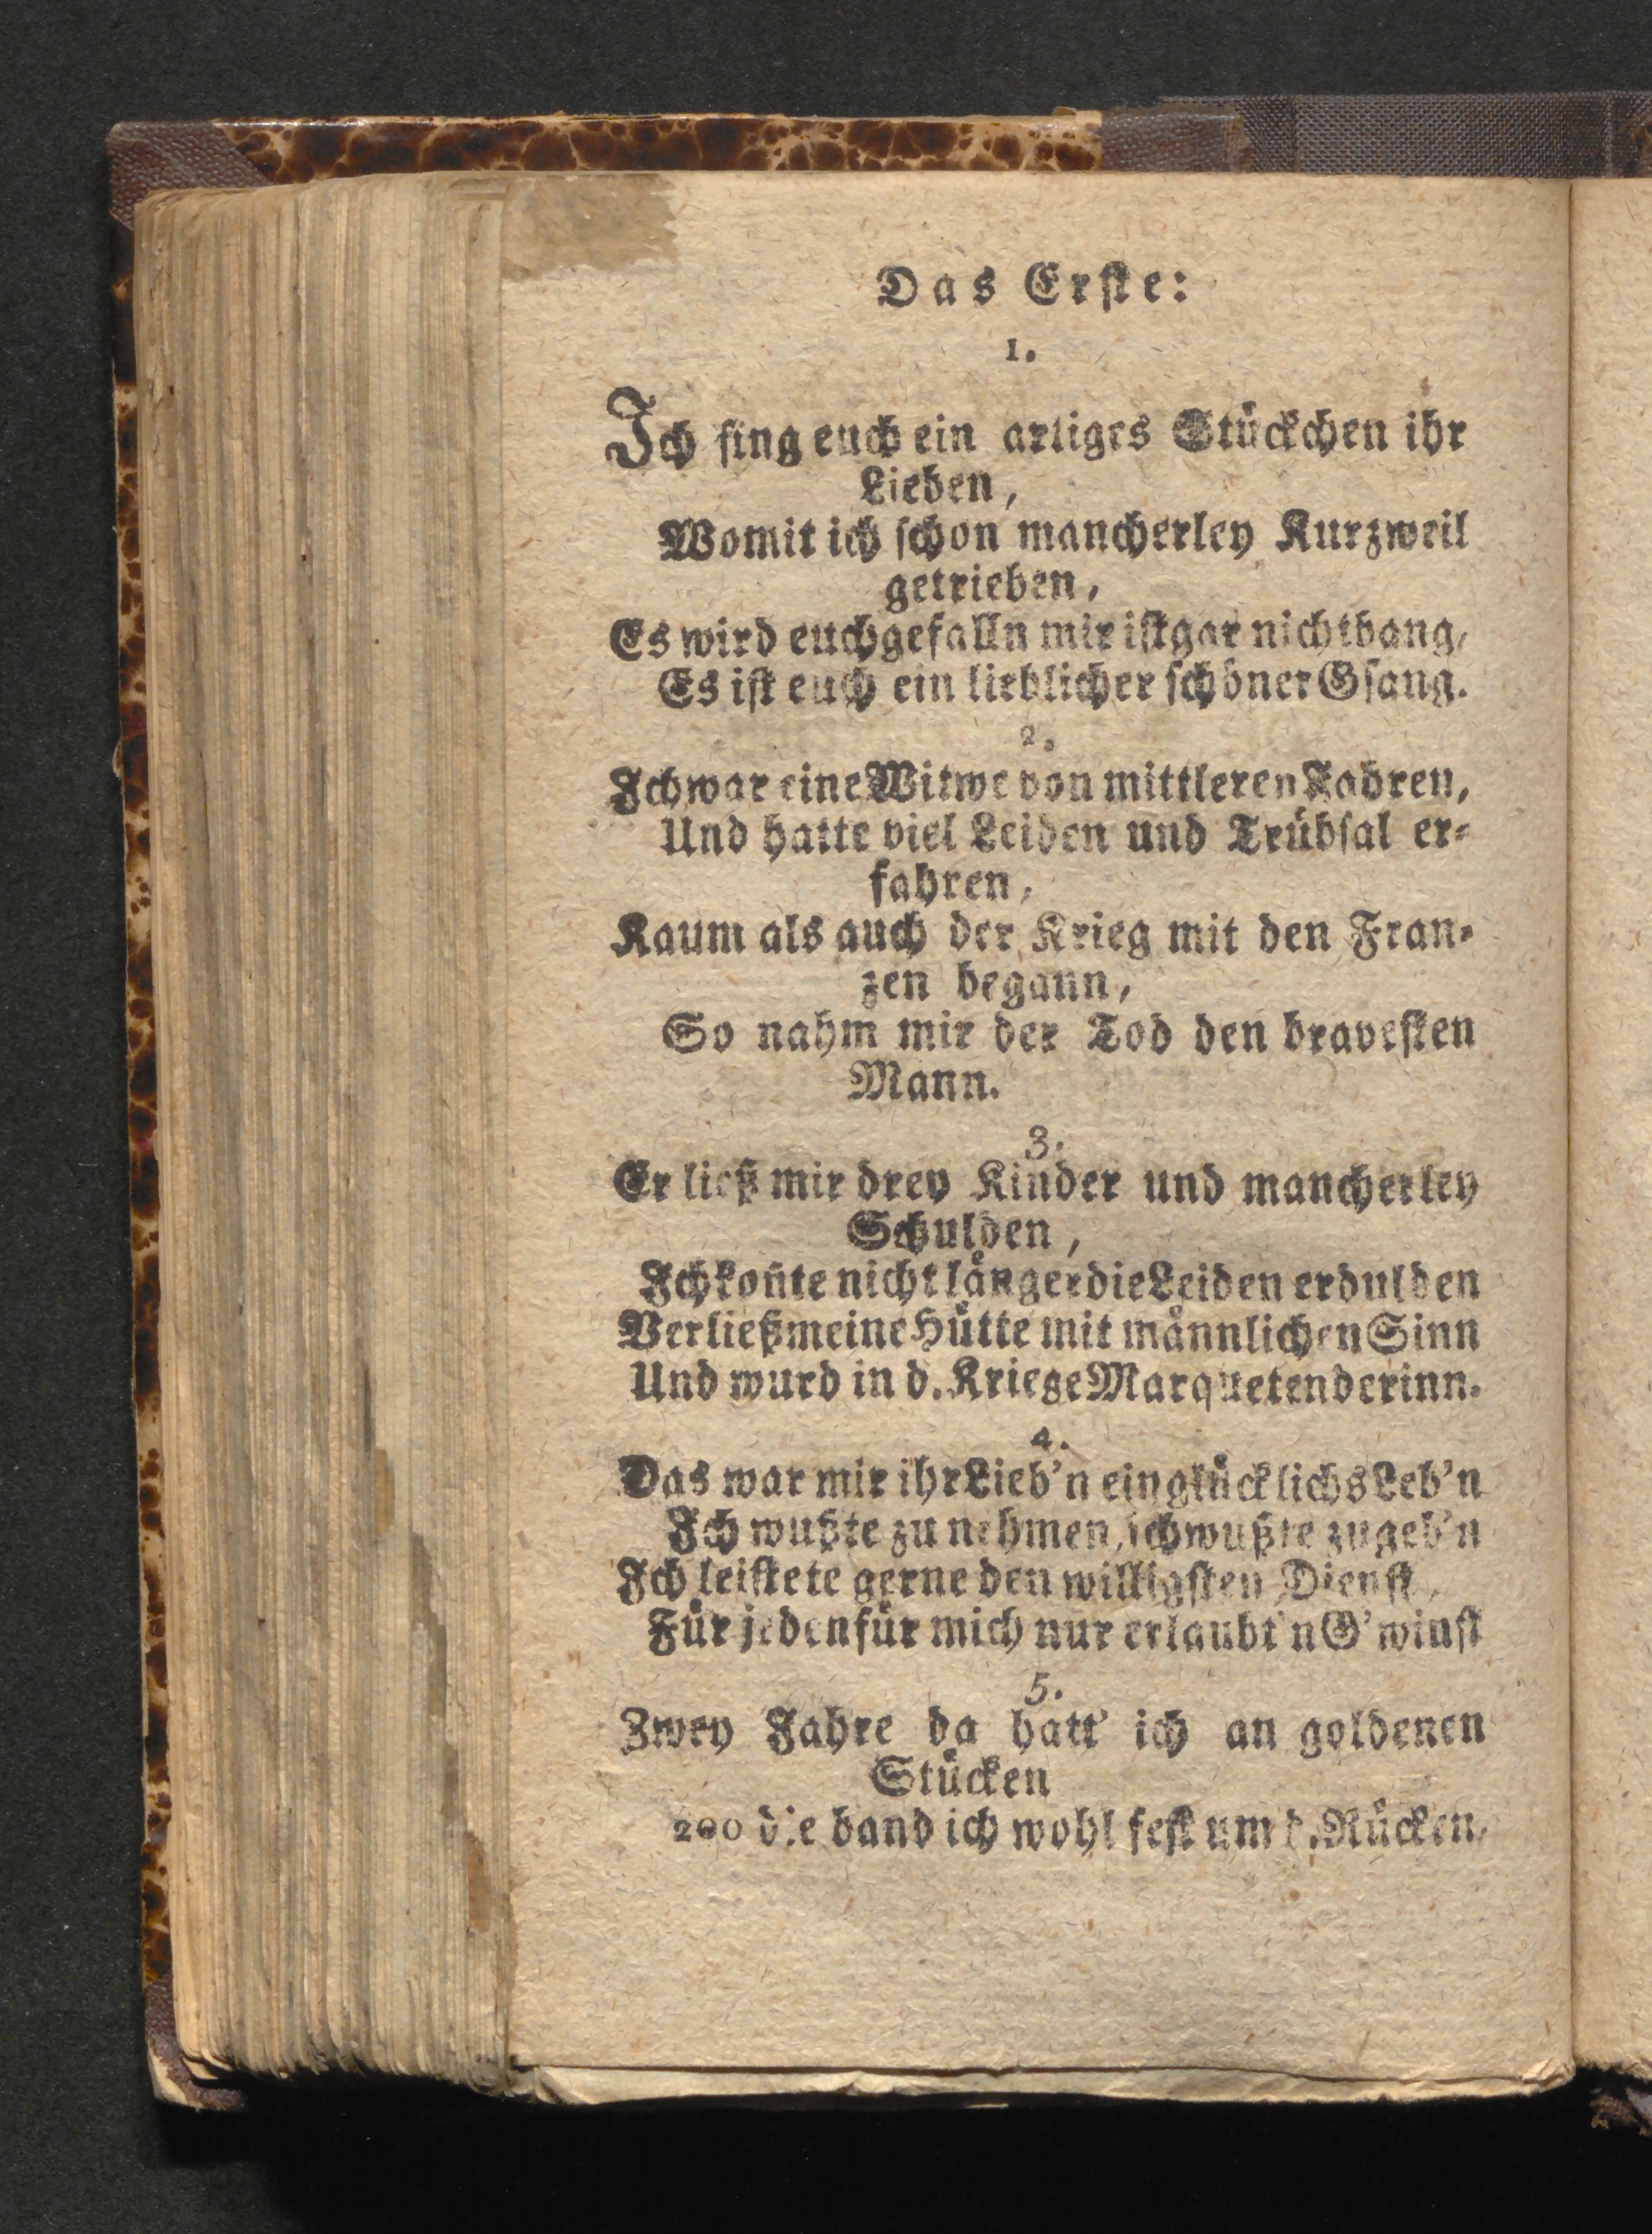 Das Erſte:
1.
Ich ſing euch ein artiges Stückchen ihr
Lieben,
Womit ich ſchon mancherley Kurzweil
getrieben,
Es wird euch gefalln mir iſt gar nicht bang,
Es iſt euch ein lieblicher ſchöner Gſang.
2.
Ich war eine Witwe von mittleren Jahren,
Und hatte viel Leiden und Trübſal er⸗
fahren,
Kaum als auch der Krieg mit den Fran⸗
zen begann,
So nahm mir der Tod den braveſten
Mann.
3.
Er ließ mir drey Kinder und mancherley
Schulden,
Ich kon̄te nicht länger die Leiden erdulden
Verließ meine Hütte mit männlichen Sinn
Und wurd in d. Kriege Marquetenderinn.
4.
Das war mir ihr Lieb'n ein glücklichs Leb'n
Ich wußte zu nehmen, ich wußte zu geb'n
Ich leiſtete gerne den willigſten Dienſt,
Für jeden für mich nur erlaubt'n G'winſt
5.
Zwey Jahre da hatt' ich an goldenen
Stücken
200 die band ich wohl feſt um d. Rücken,